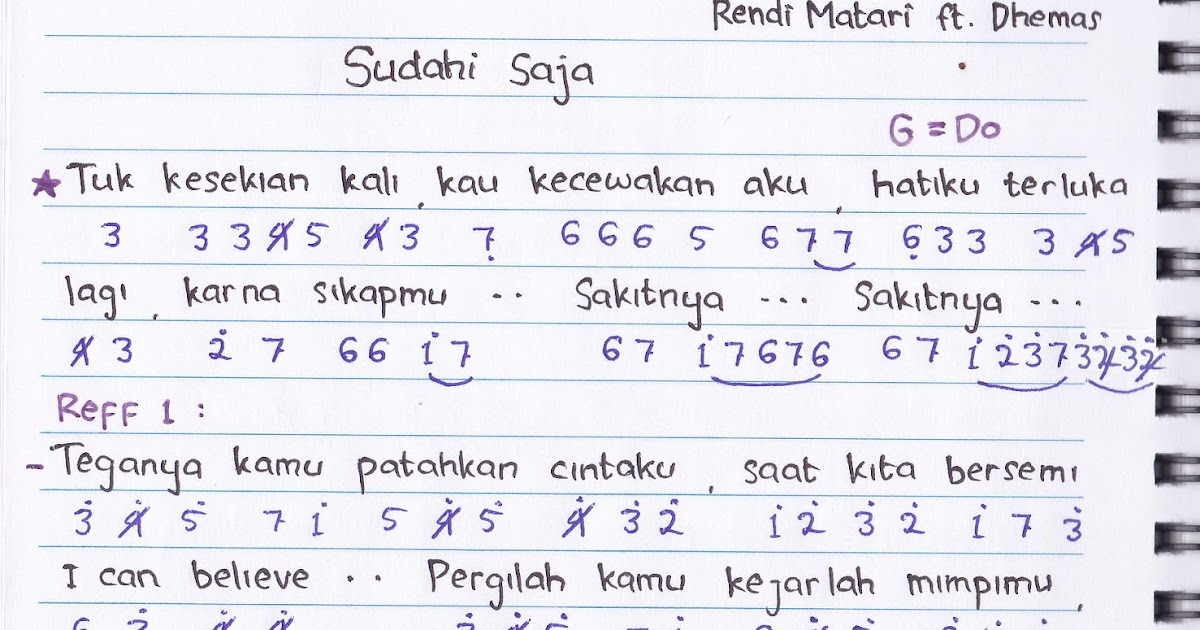 Rendi Matari ft. Dhemas
Sudahi Saja
G = Do
★ Tuk kesekian kali, kau kecewakan aku, hatiku terluka
3 3 3 4̸ 5 4̸ 3 7̣ 6 6 6 5 6 7 7 6̣ 3 3 3 4̸ 5
lagi, karna sikapmu .. Sakitnya ... Sakitnya ...
4̸ 3 2̇ 7 6 6 1̇ 7 6 7 1̇ 7 6 7 6 6 7 1̇ 2̇ 3̇ 7 3̇ 2̸̇ 3̇ 2̸̇
Reff 1 :
- Teganya kamu patahkan cintaku, saat kita bersemi
3̇ 4̸̇ 5̇ 7 1̇ 5 4̸̇ 5̇ 4̸̇ 3̇ 2̇ 1̇ 2̇ 3̇ 2̇ 1̇ 7 3̇
I can believe .. Pergilah kamu kejarlah mimpimu,